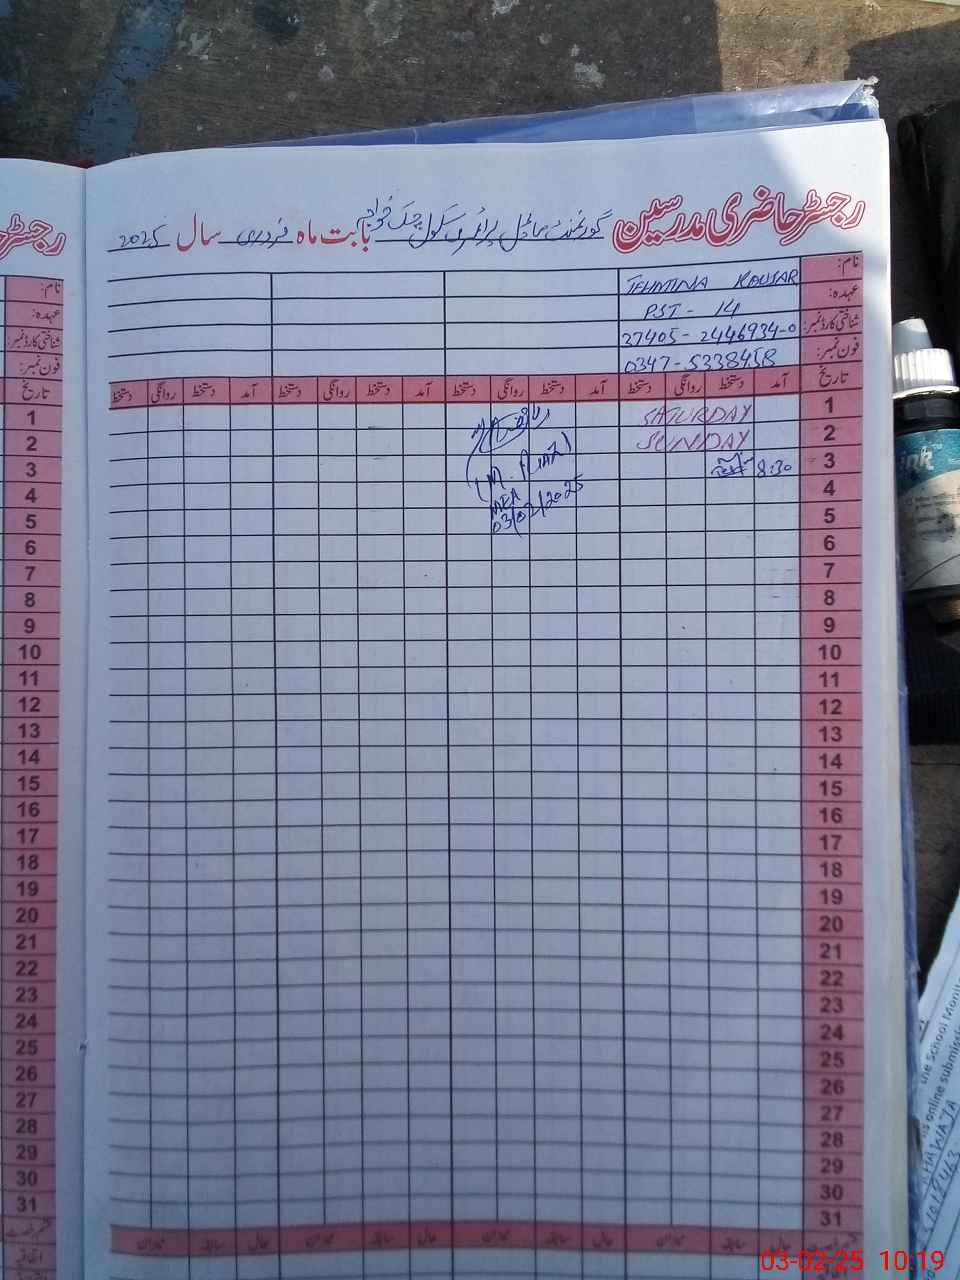 رجسٹر حاضری مدرسین گورنمنٹ ماڈل پرائمری سکول چک خواجہ بابت ماہ فروری سال 2025
نام: TEHMINA KOUSAR
عہدہ: PST - 14
شناختی کارڈ نمبر: 37405-2446934-0
فون نمبر: 0347-5338458
تاریخ آمد دستخط روانگی دستخط آمد دستخط روانگی دستخط آمد دستخط روانگی دستخط آمد دستخط روانگی دستخط
1 SATURDAY
2 SUNDAY
3 8:30
(M. RIAZ)
MEA
03/02/2025
4
5
6
7
8
9
10
11
12
13
14
15
16
17
18
19
20
21
22
23
24
25
26
27
28
29
30
31
رجسٹر حا
نام:
عہدہ:
شناختی کارڈ نمبر:
فون نمبر:
تاریخ
1
2
3
4
5
6
7
8
9
10
11
12
13
14
15
16
17
18
19
20
21
22
23
24
25
26
27
28
29
30
31
ink
the School Monito
online submissio
KHAWAJA
03-02-25 10:19